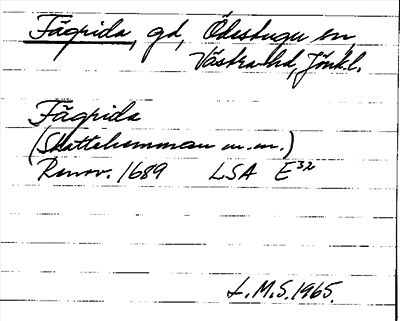 Fägrida, gd, Ödestugu sn,
Västra hd, Jönk.l.
Fägrida
(Skattehemman m.m.)
Renov. 1689 LSA E32
L.M.S. 1965.